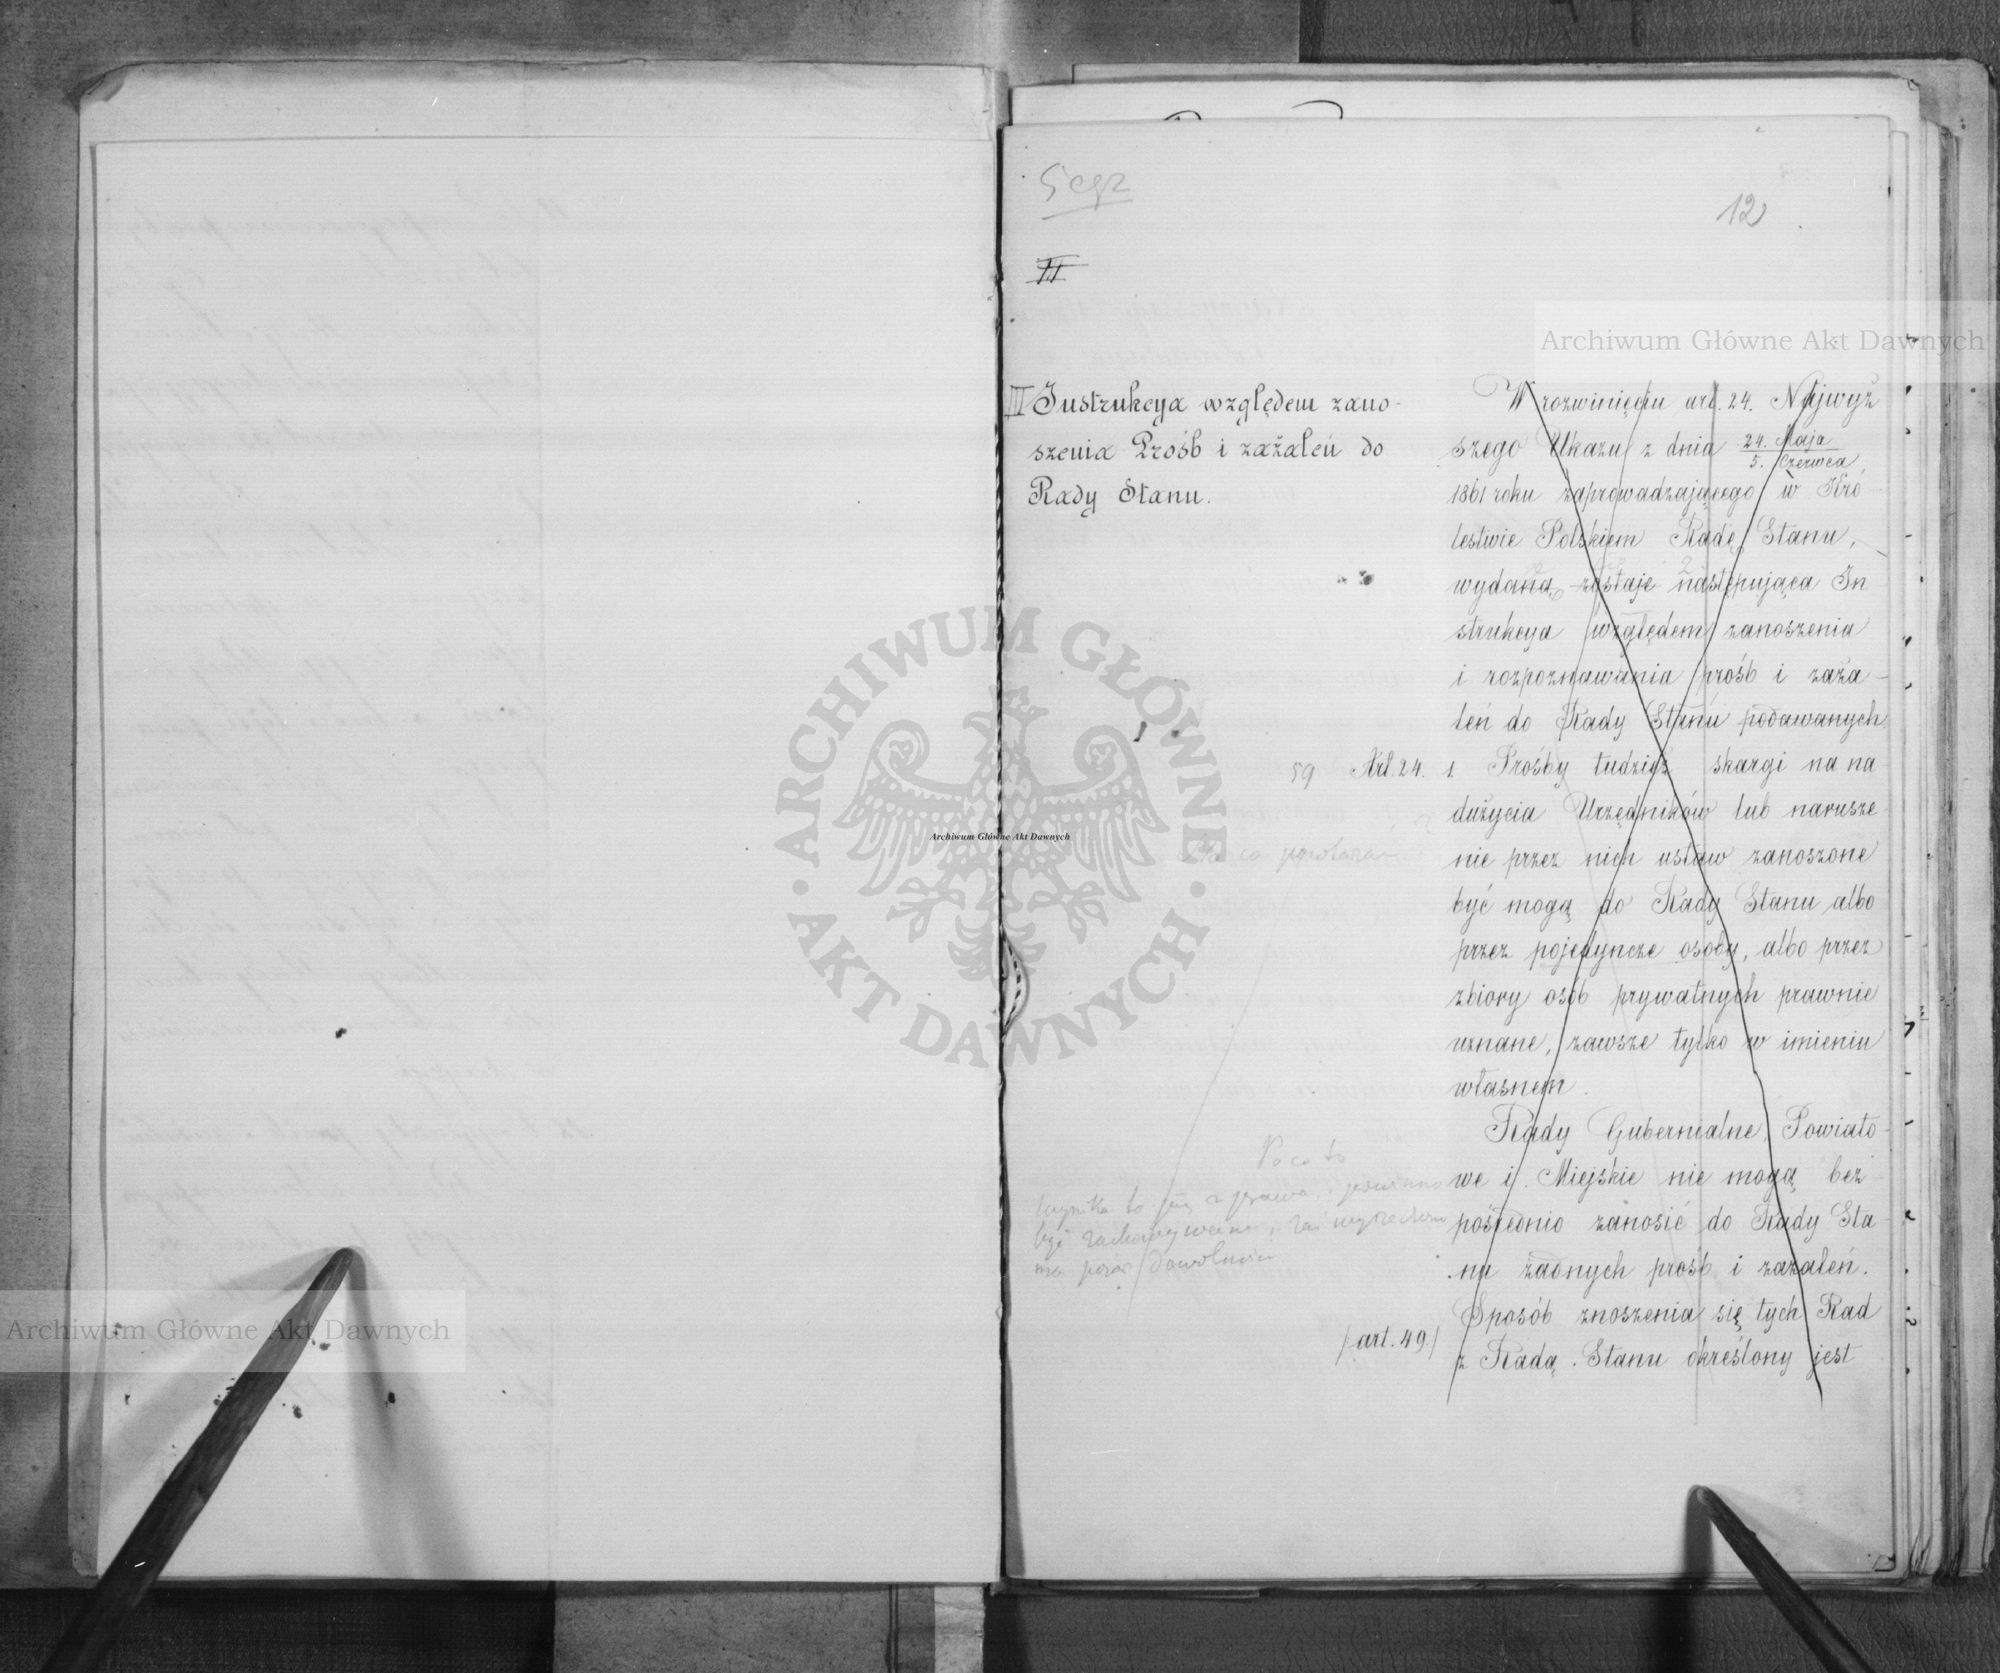 5 egz
12
II
III Instrukcya względem zano-
szenia Prośb i zażaleń do
Rady Stanu.
W rozwinięciu art. 24. Najwyż
szego Ukazu z dnia 24. Maja / 5. Czerwca
1861 roku zaprowadzającego w Kró-
lestwie Polskiem Radę Stanu,
wydana zostaje następująca In-
strukcya względem zanoszenia
i rozpoznawania prośb i zaża-
leń do Rady Stanu podawanych.
59 Art. 24. 1. Prośby tudzież skargi na na-
dużycia Urzędników lub narusze-
nie przez nich ustaw zanoszone
Na co powtarzać
być mogą do Rady Stanu albo
przez pojedyncze osoby, albo przez
zbiory osób prywatnych prawnie
uznane, zawsze tylko w imieniu
własnem.
Rady Gubernialne, Powiato-
we i Miejskie nie mogą bez-
pośrednio zanosić do Rady Sta-
nu żadnych prośb i zażaleń.
Po co to
wynika to już z prawa, i powinno
być zachowywane,
ma pozór dowolności
Sposób znoszenia się tych Rad
/art. 49./ z Radą Stanu określony jest
Archiwum Główne Akt Dawnych
Archiwum Główne Akt Dawnych
Archiwum Główne Akt Dawnych
ARCHIWUM GŁÓWNE
AKT DAWNYCH